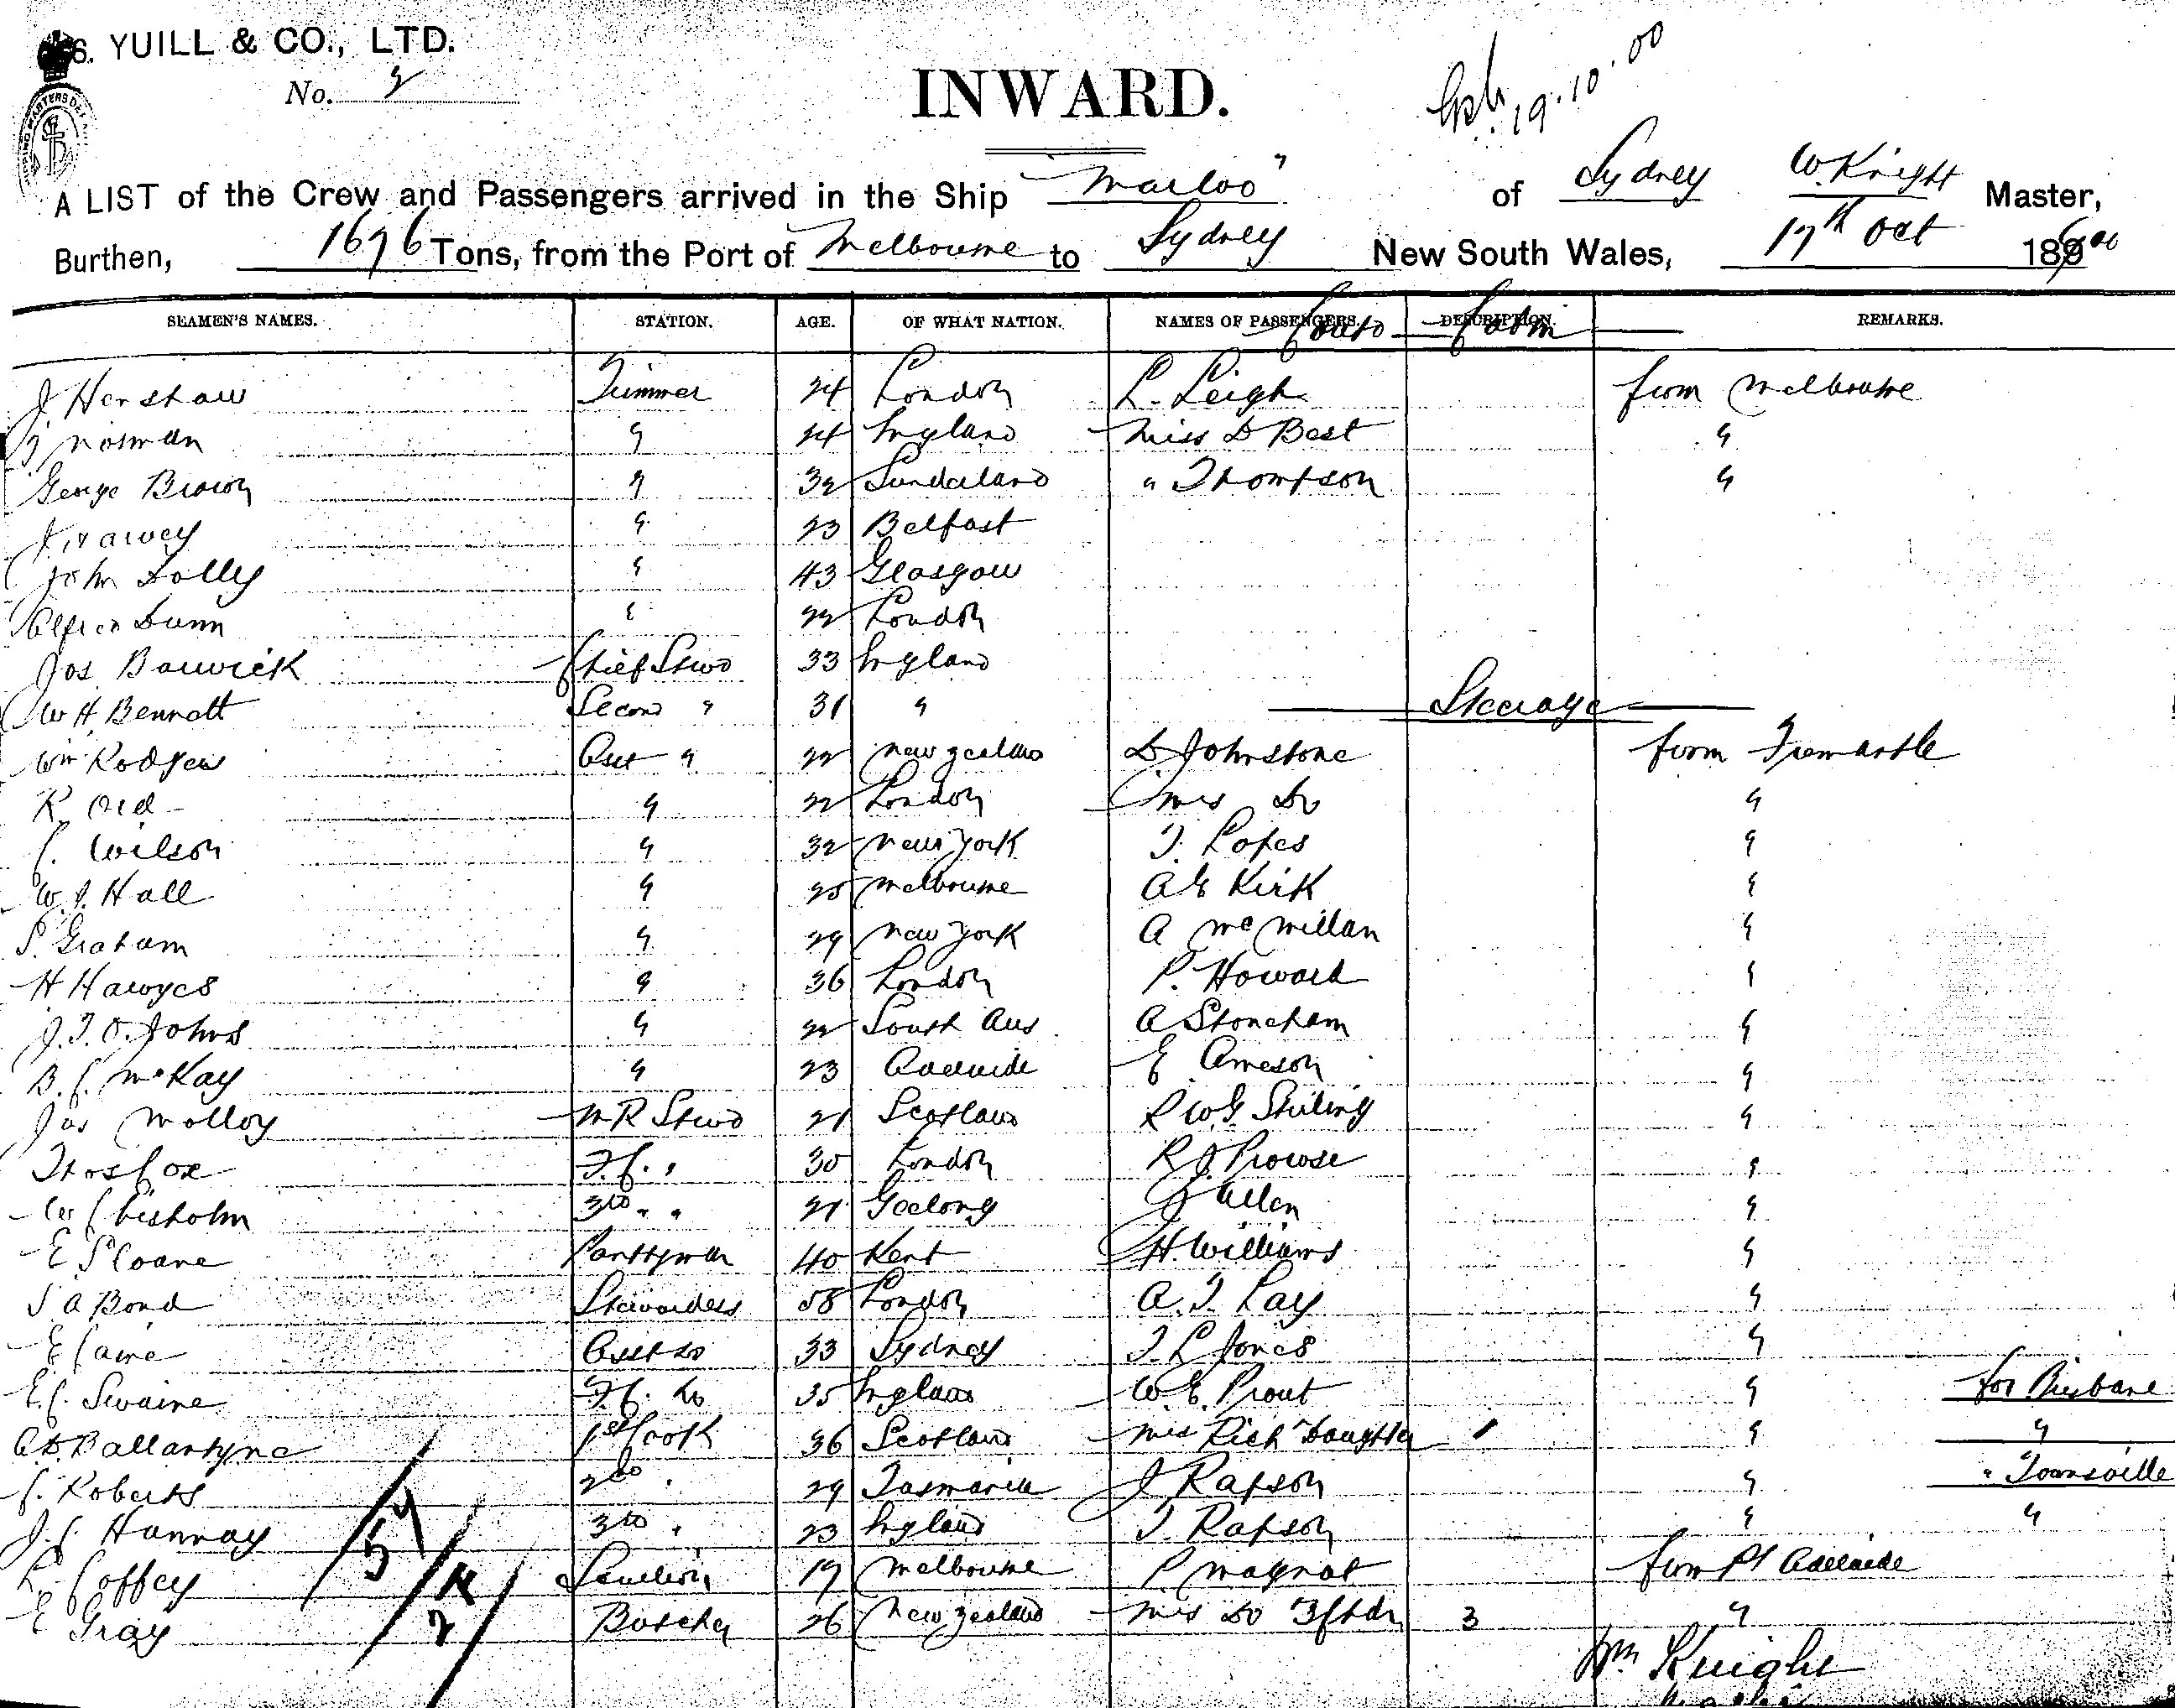 G. S. YUILL & CO., LTD.
No. 2
INWARD.
19.10.00
A LIST of the Crew and Passengers arrived in the Ship "Marloo" of Sydney W. Knight Master,
Burthen, 1676 Tons, from the Port of Melbourne to Sydney New South Wales, 17th Oct 1900
SEAMEN'S NAMES. STATION. AGE. OF WHAT NATION. NAMES OF PASSENGERS. DESCRIPTION. REMARKS.
J Henshaw Trimmer 24 London L. Leigh from Melbourne
J Norman " 24 England Miss D Best "
George Brown " 32 Sunderland " Thompson "
J Harvey " 23 Belfast
John Dolly " 43 Glasgow
Alfred Dunn " 22 London
Jos Barwick Chief Stwd 33 England
W H Bennett Second " 31 "
Steerage
Wm Rodgers Asst " 22 New Zealand D Johnstone from Fremantle
R. Ord " 22 London Mrs Do "
C. Wilson " 32 New York T. Lopes "
W. J. Hall " 25 Melbourne A E Kirk "
S. Graham " 29 New York A McMillan "
H Hawyes " 36 London P. Howard "
J. T. O. Johns " 22 South Aus A Stoneham "
B. C. McKay " 23 Adelaide E Ameson "
Jas Molloy M R Stwd 21 Scotland R W G Stirling "
Thos Cox F. C. " 30 London R J Prowse "
W Chisholm 3rd " " 21 Geelong J Allen "
E Sloane Pantryman 40 Kent H. Williams "
S A Bond Stewardess 58 London A. T. Lay "
E Caire Asst Do 33 Sydney T. L Jones "
E. C. Swaine F. C. Do 35 England W. E. Prout " for Brisbane
A. D. Ballantyne 1st Cook 36 Scotland Mrs Rich Daughter 1 " "
C. Roberts 2nd " 29 Tasmania J Rapson " " Townsville
J. C. Hannay 3rd " 23 England T. Rapson " "
L. Coffey Scullion 19 Melbourne P. Magnot from Pt Adelaide
E Gray Butcher 26 New Zealand Mrs Do 3 Chdn 3 "
Wm Knight